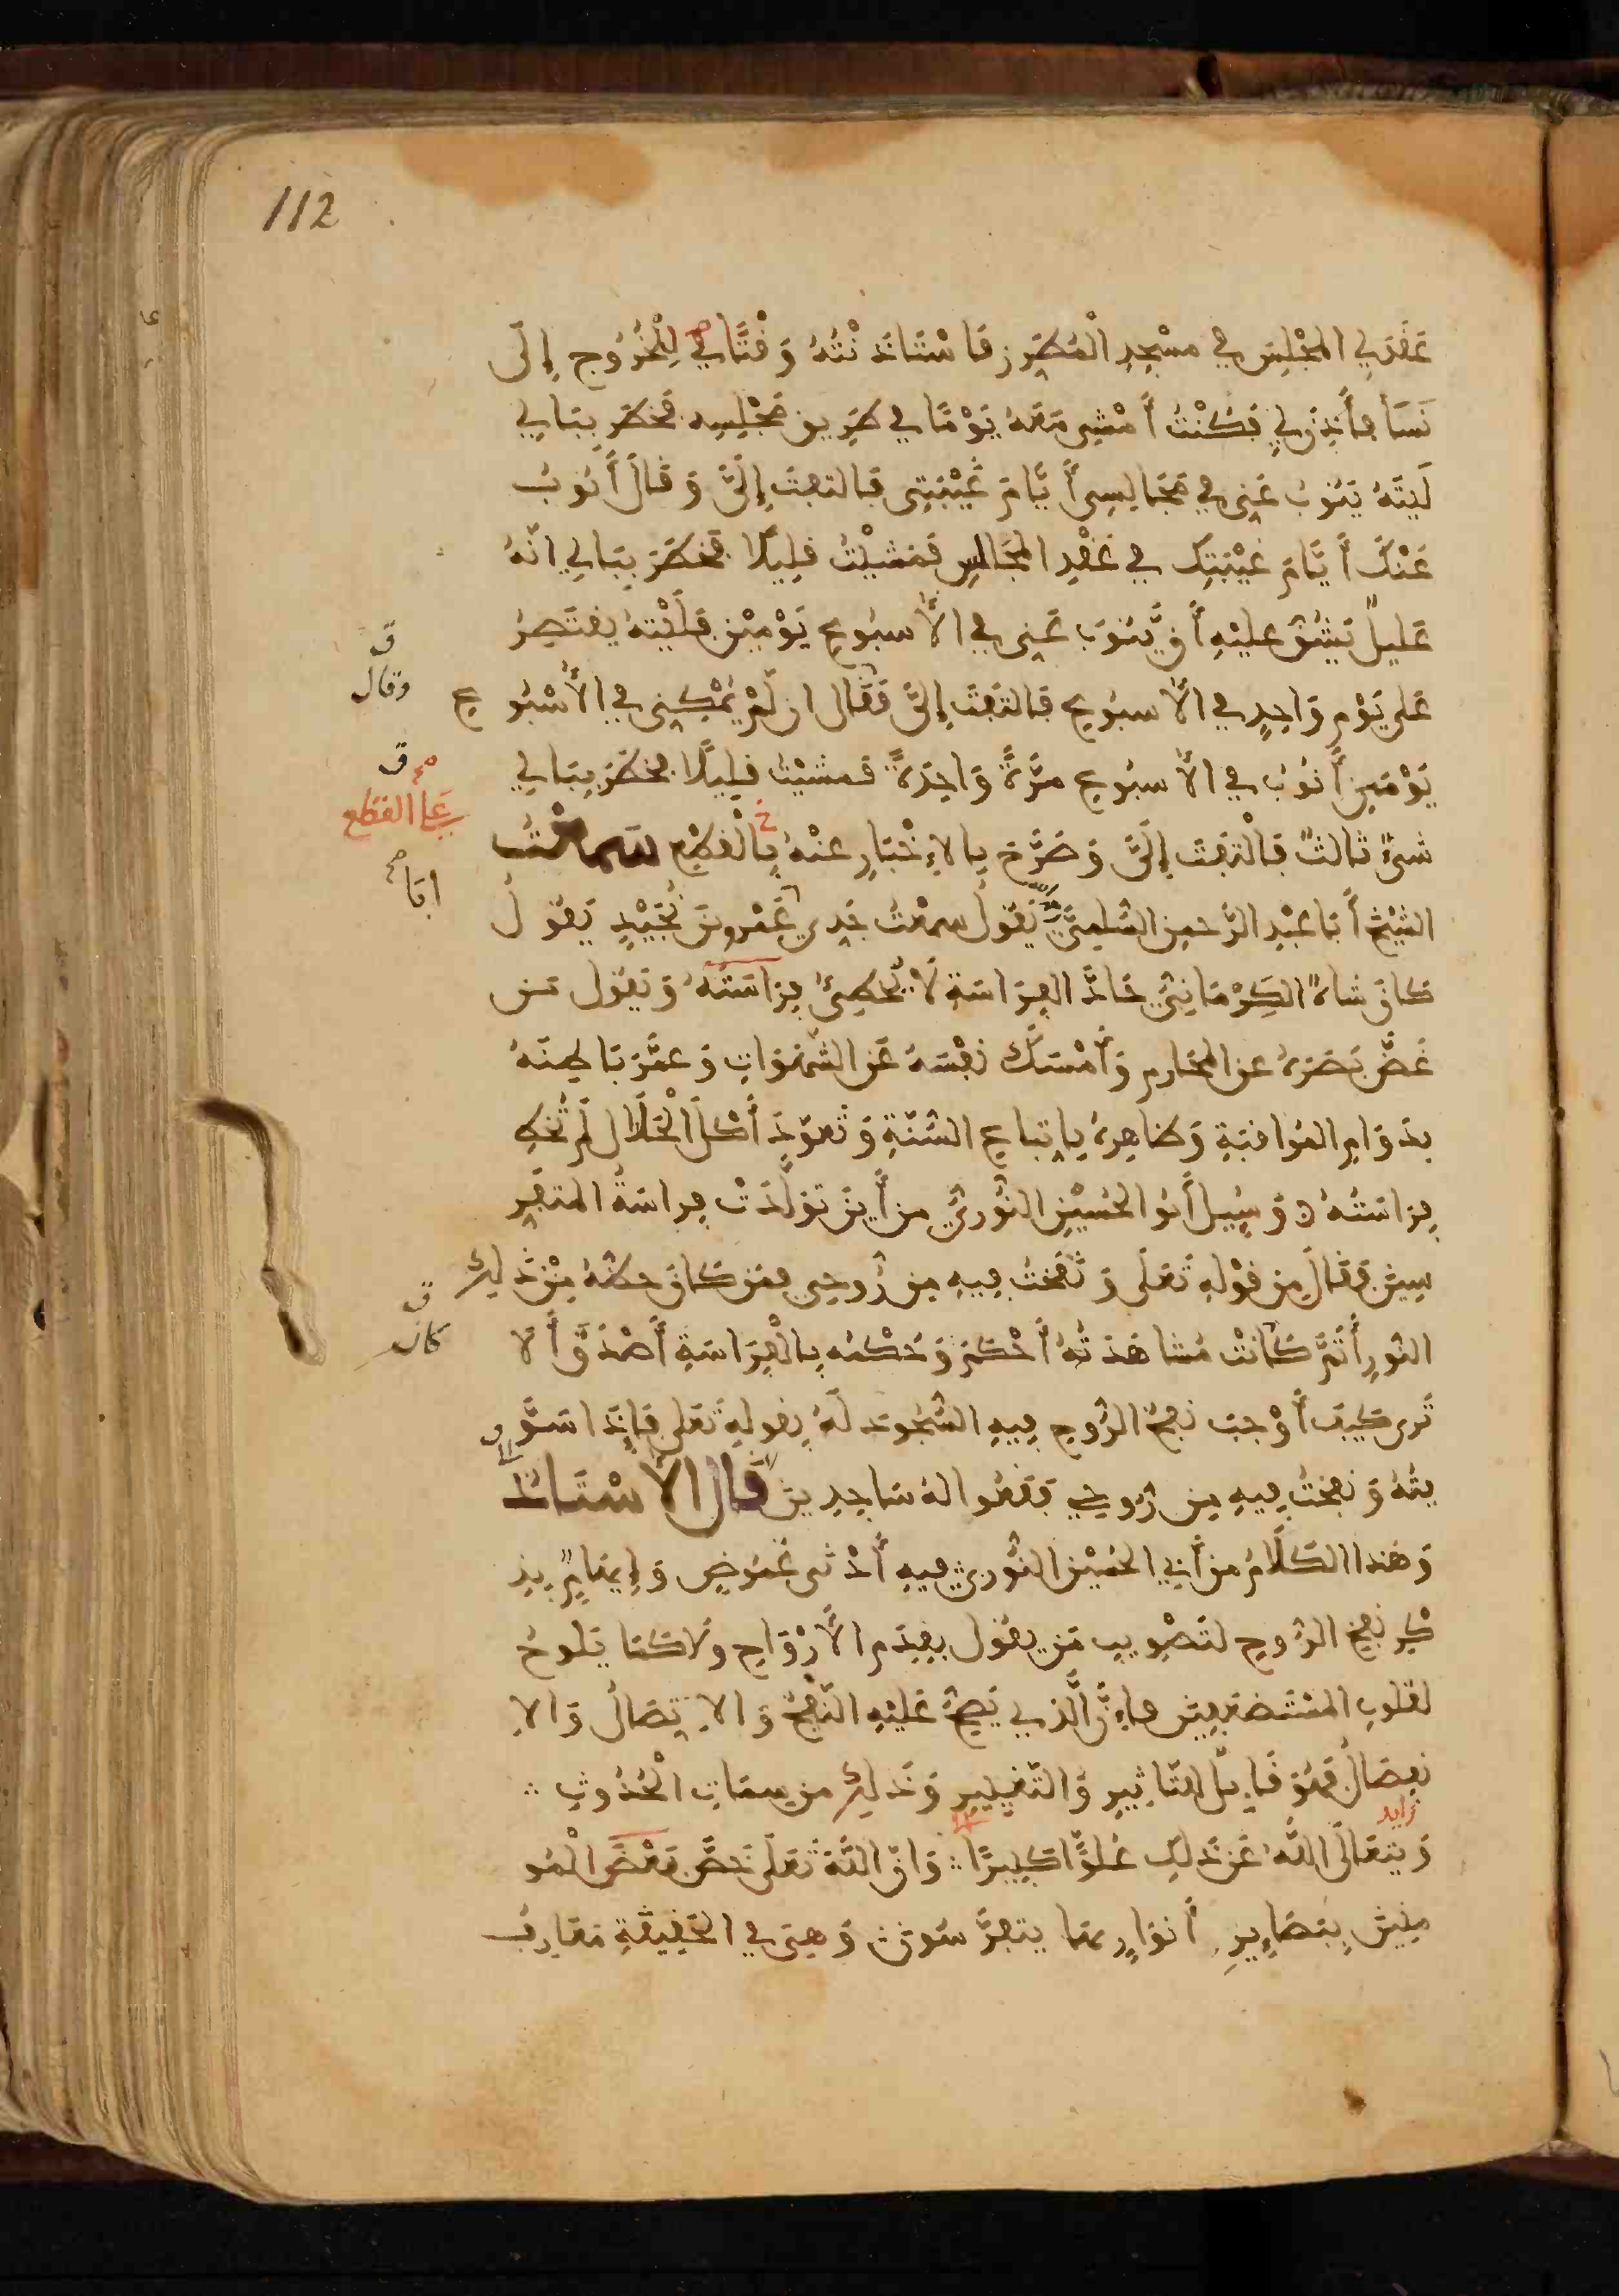 112
عَقَدَ لِي المَجْلِسَ فِي مَسْجِدِ الْمُطَرِّزِ فَاسْتَاذَنْتُهُ وَقْتًا فِي لِلْخُرُوجِ إِلَى
نَسَا فَأَذِنَ لِي فَكُنْتُ أَمْشِي مَعَهُ يَوْمًا فِي طَرِيقِ مَجْلِسِهِ فَخَطَرَ بِبَالِي
لَيْتَهُ يَنُوبُ عَنِّي فِي مَجَالِسِي أَيَّامَ غَيْبَتِي فَالتَفَتَ إِلَيَّ وَقَالَ أَنُوبُ
عَنْكَ أَيَّامَ غَيْبَتِكَ فِي عَقْدِ المَجَالِسِ فَمَشَيْتُ قَلِيلًا فَخَطَرَ بِبَالِي انَّهُ
عَلِيلٌ يَشُقُّ عَلَيْهِ أَنْ يَّنُوبَ عَنِّي فِي الأُسبُوعِ يَوْمَيْنِ فَلَيْتَهُ يَقْتَصِرُ
عَلَى يَوْمٍ وَاحِدٍ فِي الأُسبُوعِ فَالتَفَتَ إِلَيَّ فَقَالَ ان لَمْ يُمْكِنِّي فِي الأُسْبُوعِ
يَوْمَيْنِ أَنُوبُ فِي الأُسبُوعِ مَرَّةً وَاحِدَةً فَمَشَيْتُ قَلِيلًا فَخَطَرَ بِبَالِي
شَيْءٌ ثَالِثٌ فَالْتَفَتَ إِلَيَّ وَصَرَّحَ بِالإِخْبَارِ عَنْهُ بِالْقَطْعِ سَمِعْتُ
الشَّيْخَ أَبَا عَبْدِ الرَّحمنِ السُّلَمِيَّ يَقُولُ سَمِعْتُ جَدِّي عَمْرو بْنَ نُجَيْدٍ يَقُولُ
كَانَ شَاهُ الكِرْمَانِيُّ حَادَّ الفِرَاسَةِ لَا يُخْطِئُ فِرَاسَتُهُ وَيَقُولُ مَن
غَضَّ بَصَرَهُ عن المَحَارِمِ وَأَمْسَكَ نَفْسَهُ عَنِ الشَّهَوَاتِ وَعَمَّرَ بَاطِنَهُ
بِدَوَامِ المُرَاقَبَةِ وَظَاهِرَهُ بِاتِّبَاعِ السُّنَّةِ وَتَعَوَّدَ أَكْلَ الْحَلَالِ لَمْ تُخْطِ
فِرَاسَتُهُ وَسُئِلَ أَبُو الحُسَيْنِ النُّورِيُّ مِن أَيْنَ تَوَلَّدَتْ فِرَاسَةُ المتَفَرِّ
سِينَ فَقَالَ مِن قَوْلِهِ تَعَلَى وَنَفَخْتُ فِيهِ مِن رُوحِي فَمَن كَانَ حَظُّهُ مِنْ ذَلِكَ
النُّورِ أَتَمَّ كَانَتْ مُشَاهَدَتُهُ أَحْكَمَ وَحُكْمُهُ بِالْفِرَاسَةِ أَصْدَقَ أَلَا
تَرى كَيْفَ أَوْجَبَ نَفْخُ الرُّوحِ فِيهِ السُّجُودَ لَهُ بِقَولِهِ تَعَلى فَإِذَا سَوَّ
يْتُهُ وَنَفَخْتُ فِيهِ مِن رُوحِي فَقَعُوا لَهُ سَاجِدِينَ قَالَ الأُسْتَاذُ
وَهَذَا الكَلَامُ مِن أَبِي الحُسَيْنِ النُّورِيِّ فِيهِ أَدْنَى غُمُوضٍ وَإِيهَامٍ بِذِ
كْرِ نَفْخِ الرُّوحِ لتَصْوِيبِ مَن يَقُولُ بِقِدَمِ الأَرْوَاحِ وَلَا كَمَا يَلُوحُ
لِقُلُوبِ المُسْتَضْعَفِينَ فَإِنَّ الَّذِي يَصِحُّ عَلَيْهِ النَّفْخُ وَالاِتِّصَالُ وَالاِ
نفِصَالُ فَهُوَ قَابِلٌ لِلتَّاثِيرِ وَالتَّغْيِيرِ وَذَلِكَ مِن سِمَاتِ الْحُدُوثِ
وَيتَعَالَى اللَّهُ عَن ذَلِكَ عُلُوًّا كَبِيرًا وَانَّ اللَّهَ تَعَلَى خَصَّ بَعْضَ الْمُو
مِنِينَ بِبَصَايِرِ أَنوَارٍ بِهَا يَتَفَرَّسُونَ وَهِيَ فِي الحَقِيقَةِ مَعَارِفُ
ق
وقال
ق
على القطع
ابا
ق
كان
زايد